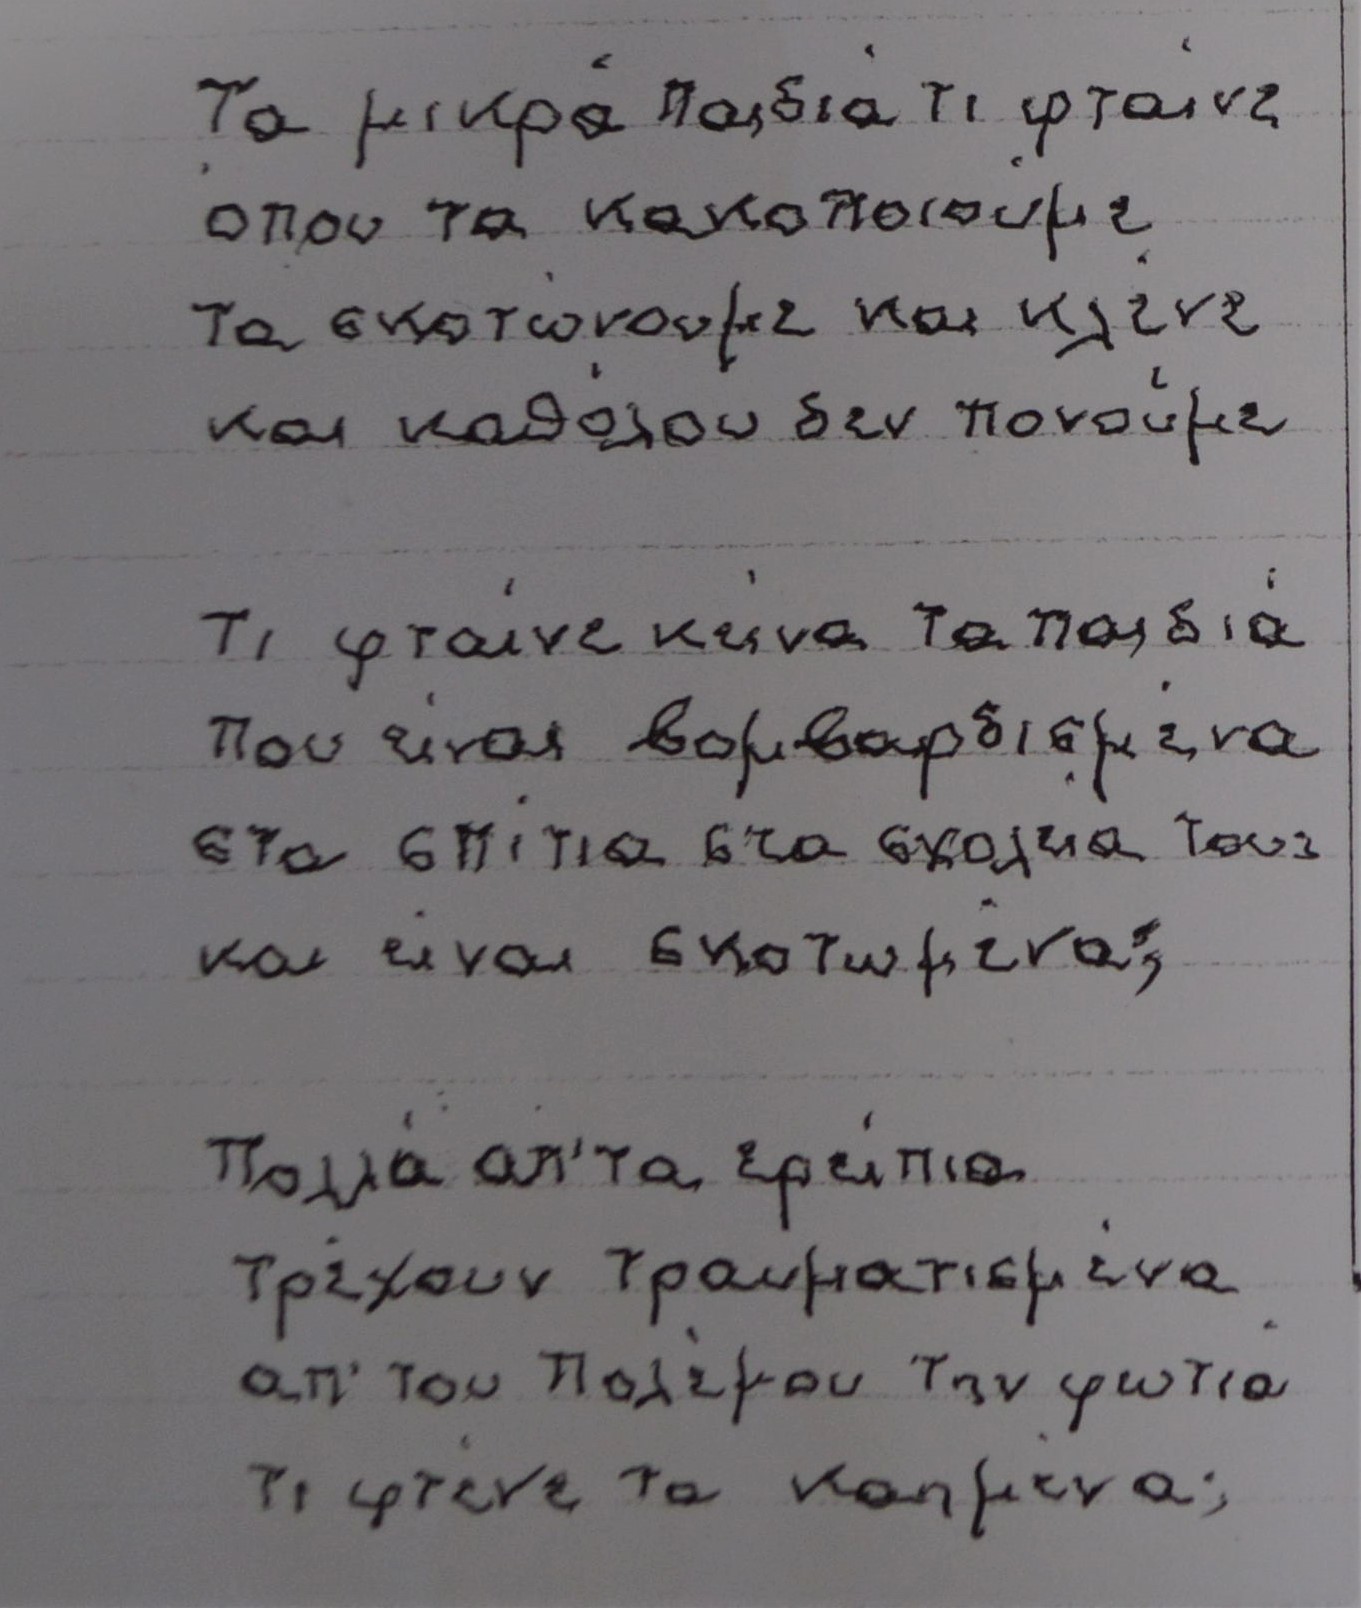 Τα μικρά παιδιά τι φταίνε
όπου τα κακοποιούμε
Τα σκοτώνουμε και κλένε
και καθόλου δεν πονούμε
Τι φταίνε κείνα τα παιδιά
που είναι βομβαρδισμένα
στα σπίτια στα σχολεία τους
και είναι σκοτωμένα;
Πολλά απ' τα ερείπια
τρέχουν τραυματισμένα
απ' του πολέμου την φωτιά
τι φτένε τα καημένα;